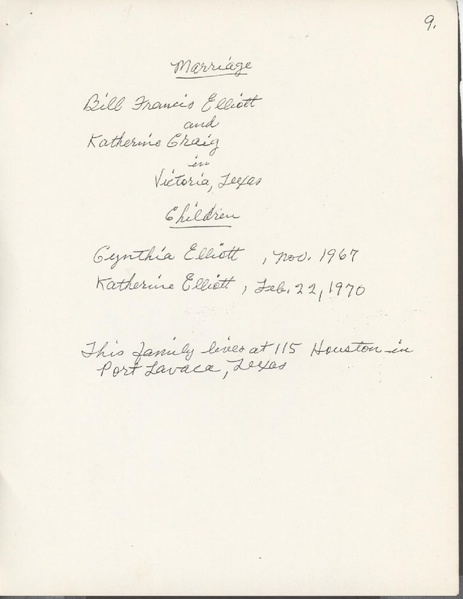 9.
Marriage
Bill Francis Elliott
and
Katherine Craig
in
Victoria, Texas
Children
Cynthia Elliott, Nov. 1967
Katherine Elliott, Feb. 22, 1970
This family lives at 115 Houston in
Port Lavaca, Texas